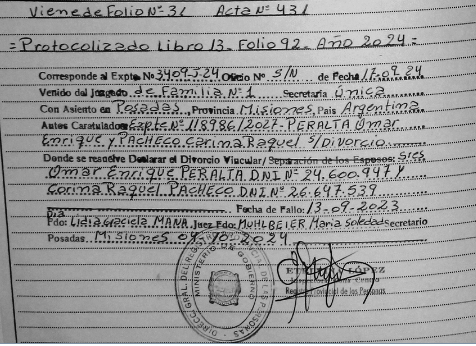 Viene de Folio Nº 31 Acta Nº 431
= Protocolizado Libro 13- Folio 92- Año 2024 =
Corresponde al Expte Nº 3409-J.24 Oficio Nº S/N de Fecha 17-09-24
Venido del Juzgado de Familia Nº 1 Secretaría Única
Con Asiento en Posadas, Provincia Misiones, País Argentina
Autos Caratulados Expte Nº 118986/2027. PERALTA Omar
Enrique y PACHECO Carina Raquel S/Divorcio
Donde se resuelve Declarar el Divorcio Vincular/ Separación de los Esposos: Sres
Omar Enrique PERALTA DNI Nº 24.600.947 y
Carina Raquel PACHECO DNI Nº 26.697.539
Fecha de Fallo: 13-09-2023
Fdo: Lidia Graciela MANA Juez Fdo: MÜHLBEIER María Soledad Secretario
Posadas, Misiones 09-10-2024
MINISTERIO DE GOBIERNO
LÓPEZ
Registro Provincial de las Personas